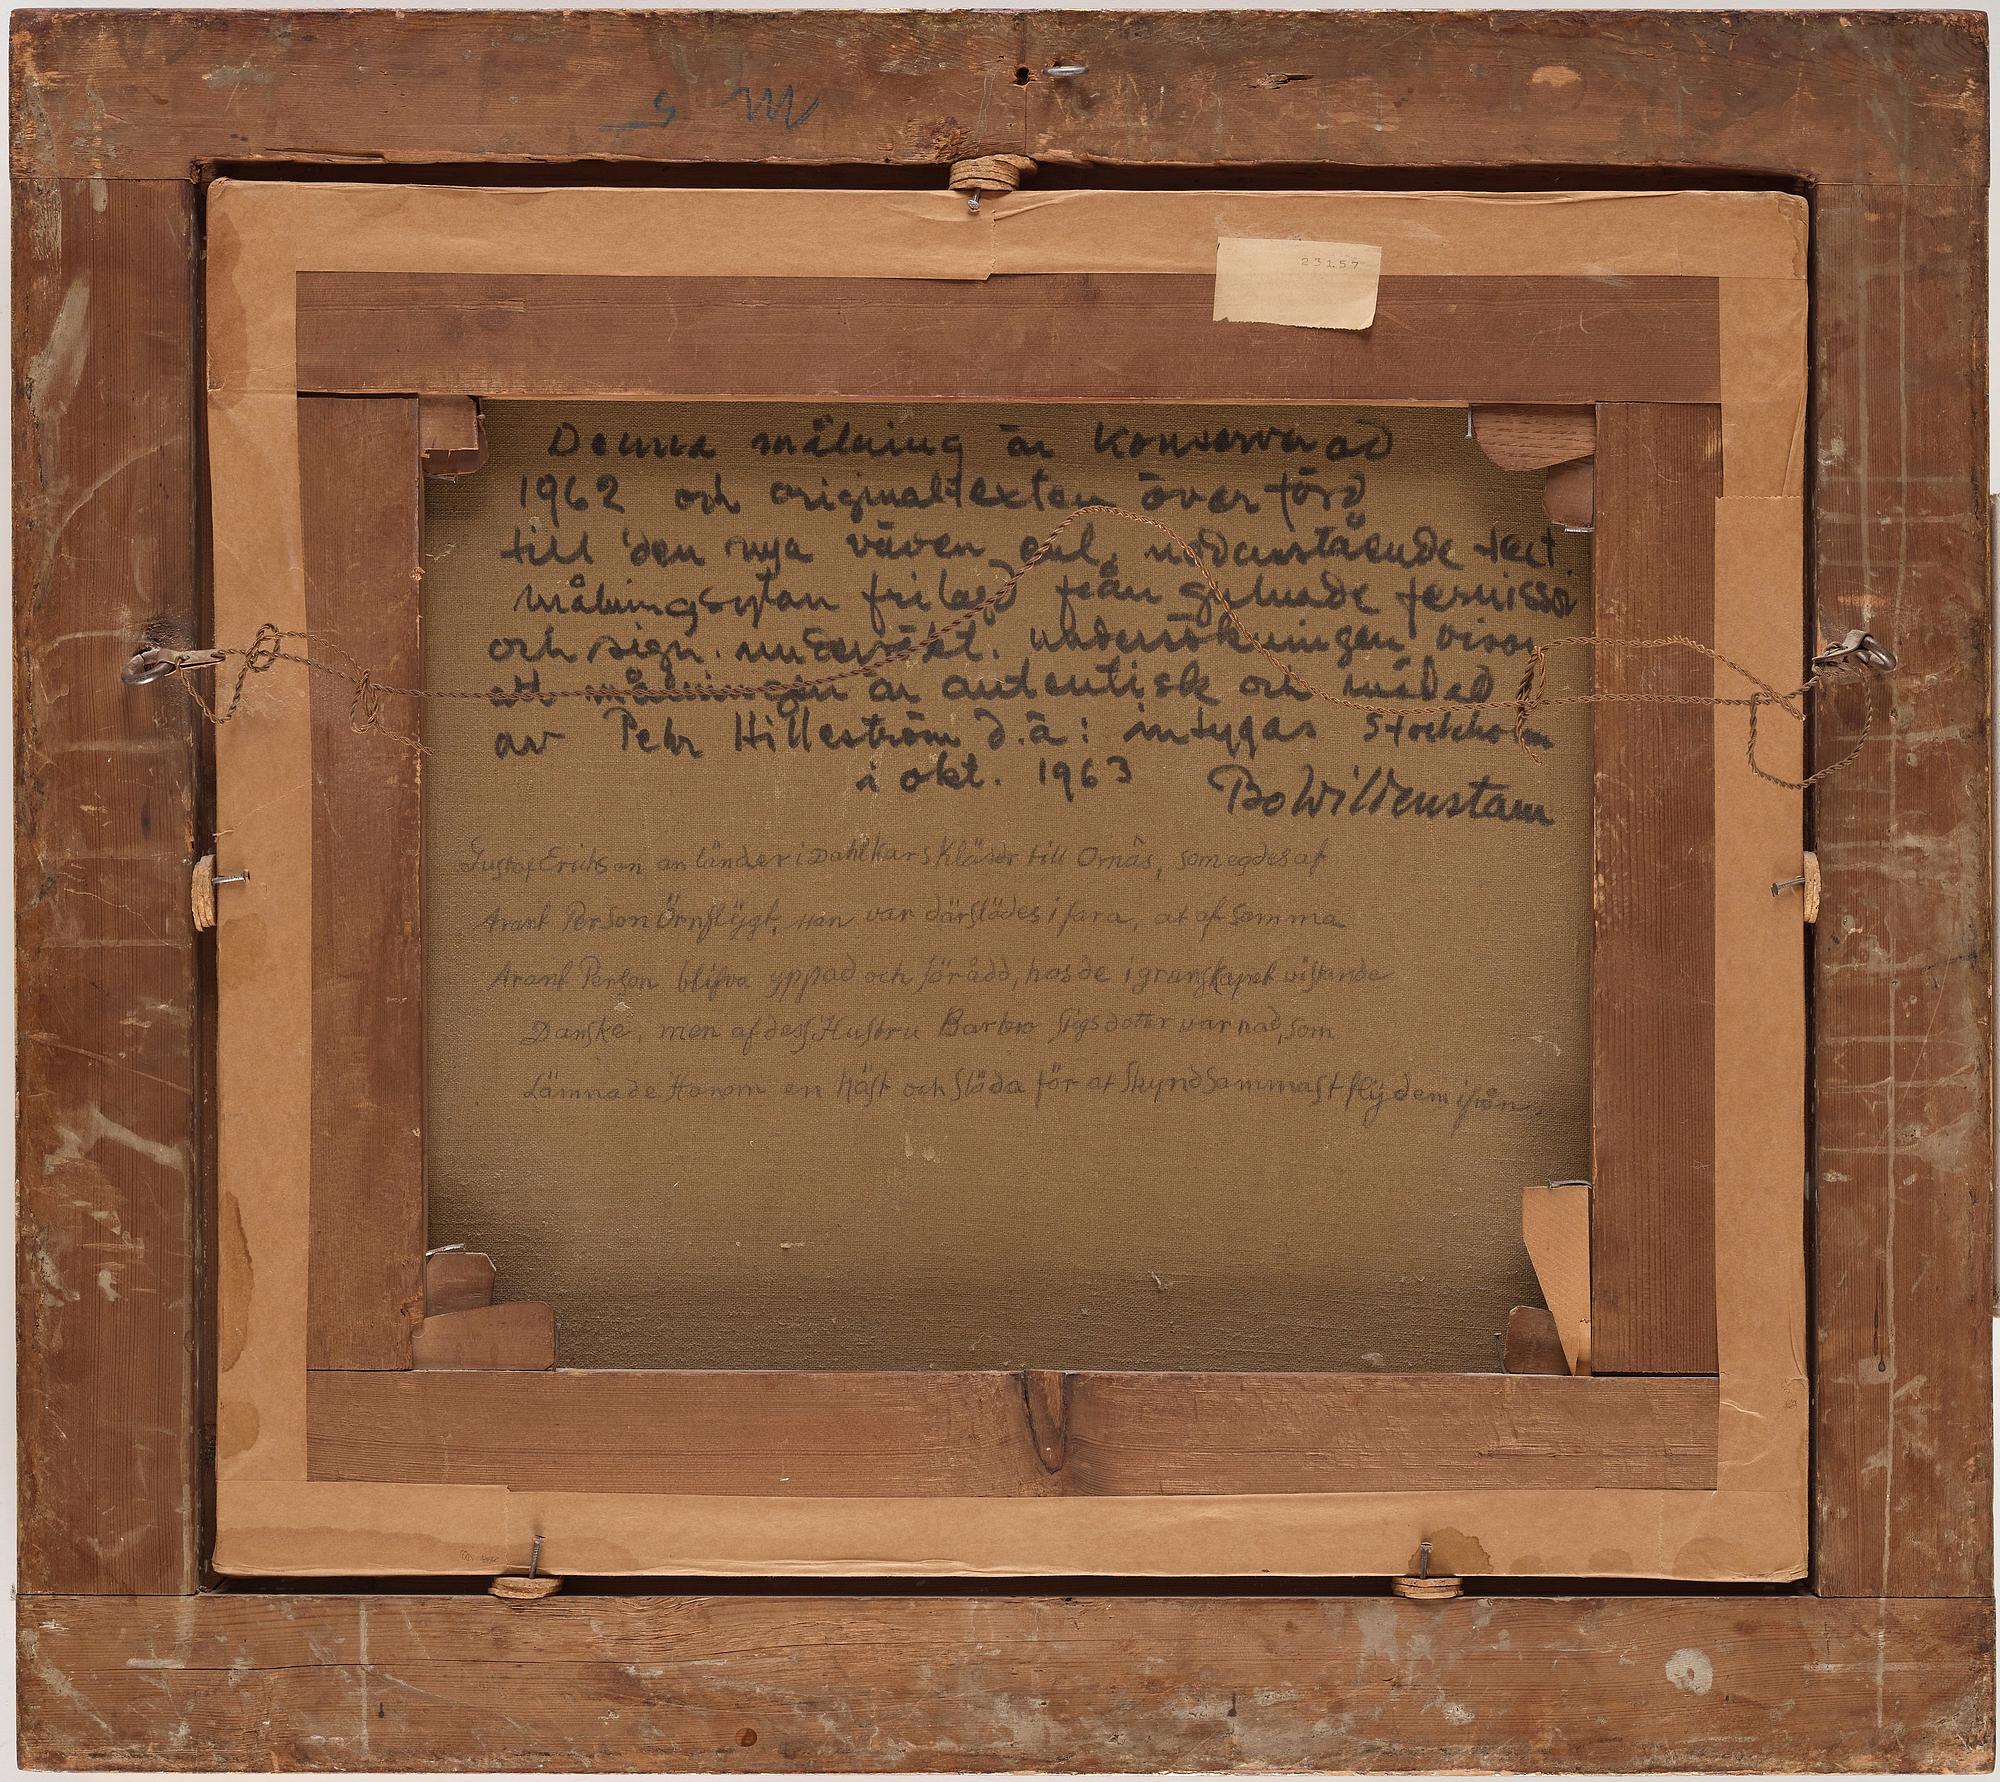 s m
231.57
Denna målning är konserverad
1962 och originaltexten överförd
till den nya väven enl. nedanstående text.
målningsytan frilagd från gulnade fernissor
och sign. undersökt. undersökningen visar
att målningen är autentisk och målad
av Pehr Hilleström d.ä: intygas Stockholm
i okt. 1963 Bo Wildenstam
Gustaf Erichson anländer i Dahlkars Kläder till Ornäs, som egdes af
Arant Person Örnflÿgt, Han var därstädes i fara, at af samma
Arant Person blifva yppad och förådd, hos de i granskapet vistande
Danske, men af dess Hustru Barbro Sigsdotter varnad, som
Lämnade Honom en häst och släda för at skyndsammast flÿ dem ifrån.